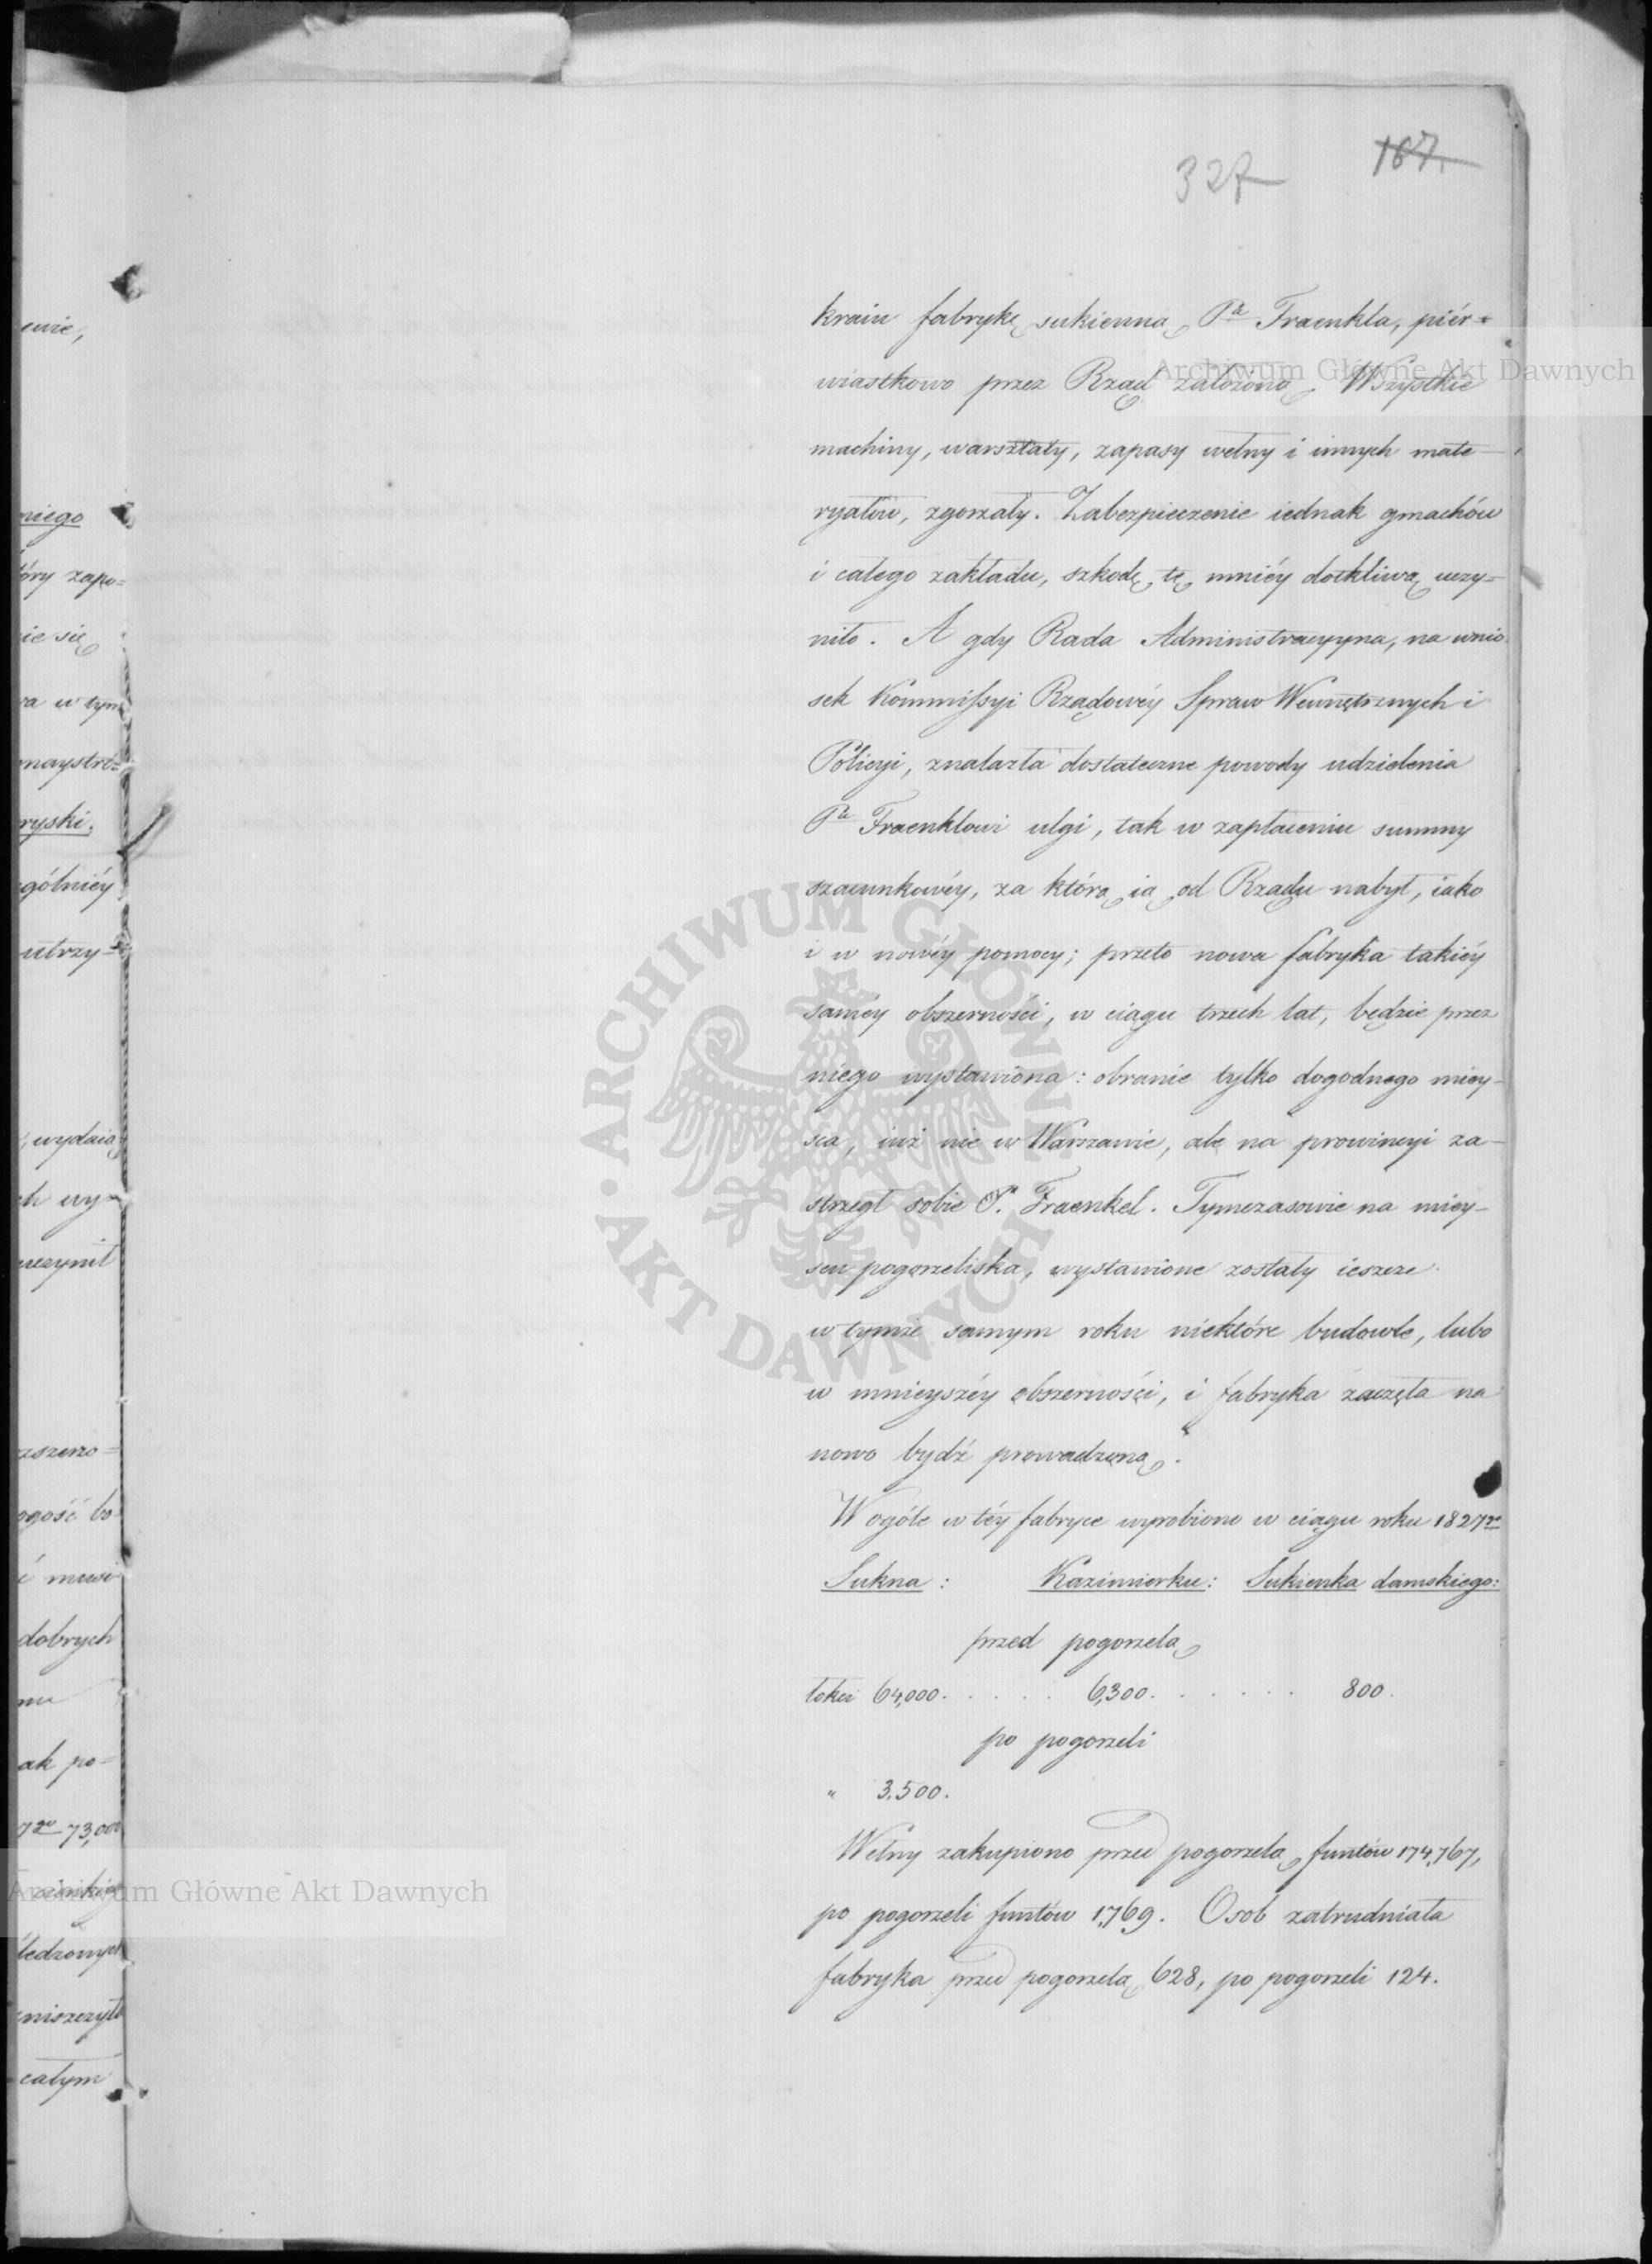 327 167.
kraiu fabrykę sukienną Pa Fraenkla, piér=
wiastkowo przez Rząd założoną. Wszystkie
machiny, warsztaty, zapasy wełny i innych mate-
ryałów, zgorzały. Zabezpieczenie iednak gmachów
i całego zakładu, szkodę tę mniéy dotkliwą uczy=
niło. A gdy Rada Administracyyna, na wnio-
sek Kommissyi Rządowéy Spraw Wewnętrznych i
Policyi, znalazła dostateczne powody udzielenia
Pu Fraenklowi ulgi, tak w zapłaceniu summy
szacunkowéy, za którą ią od Rządu nabył, iako
i w nowéy pomocy; przeto nowa fabryka takiéy
saméy obszerności, w ciągu trzech lat, będzie przez
niego wystawiona: obranie tylko dogodnego miey-
sca, iuż nie w Warszawie, ale na prowincyi za-
strzegł sobie P. Fraenkel. Tymczasowie na miey-
scu pogorzeliska, wystawione zostały ieszcze
w tymże samym roku niektóre budowle, lubo
w mnieyszéy obszerności, i fabryka zaczęła na
nowo bydź prowadzoną.
W ogóle w téy fabryce wyrobiono w ciągu roku 1827go
Sukna: Kazimirku: Sukienka damskiego:
przed pogorzelą
łokci 64,000. . . . . 6,300. . . . . . 800.
po pogorzeli
" 3.500.
Wełny zakupiono przed pogorzelą funtów 174,767,
po pogorzeli funtów 1,769. Osob zatrudniała
fabryka przed pogorzelą 628, po pogorzeli 124.
ewie,
niego
óry zapo=
ie się
ra w tym
maystró=
ryski.
gólniéy
utrzy=
, wydaią
ch wy-
uczynił
zszerzo=
ogość bo-
i musi
dobrych
mu
ak po=
7go 73,000
ledzonych
niszczyło
całym
Archiwum Główne Akt Dawnych
Archiwum Główne Akt Dawnych
ARCHIWUM GŁÓWNE · AKT DAWNYCH ·